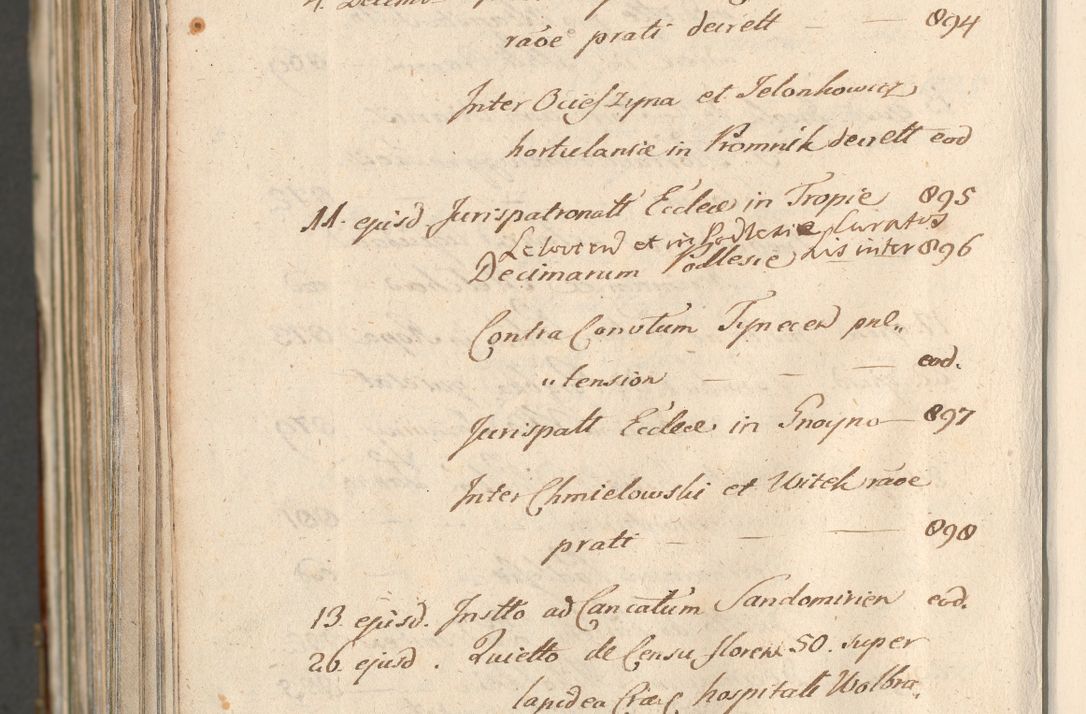 raõe prati decrett — — 894
Inter Ocieszyna et Jelonkowicz
hortulaniæ in Promnik decrett eod
11. ejusd Jurispatronatt Eccleæ in Tropie 895
et in Podlesie Curatus
Decimarum Podlesie Lis inter 896
Contra Conutum Tynecen præ„
„tension — — — eod.
Jurispatt Eccleæ in Gnoyno — 897
Inter Chmielowski et Witek raõe
prati — — — 898
13. ejusd. Instto ad Cancatum Sandomirien eod.
26. ejusd. Quietto de Censu floren 50. super
lapidea Crac hospitali Wolbra„